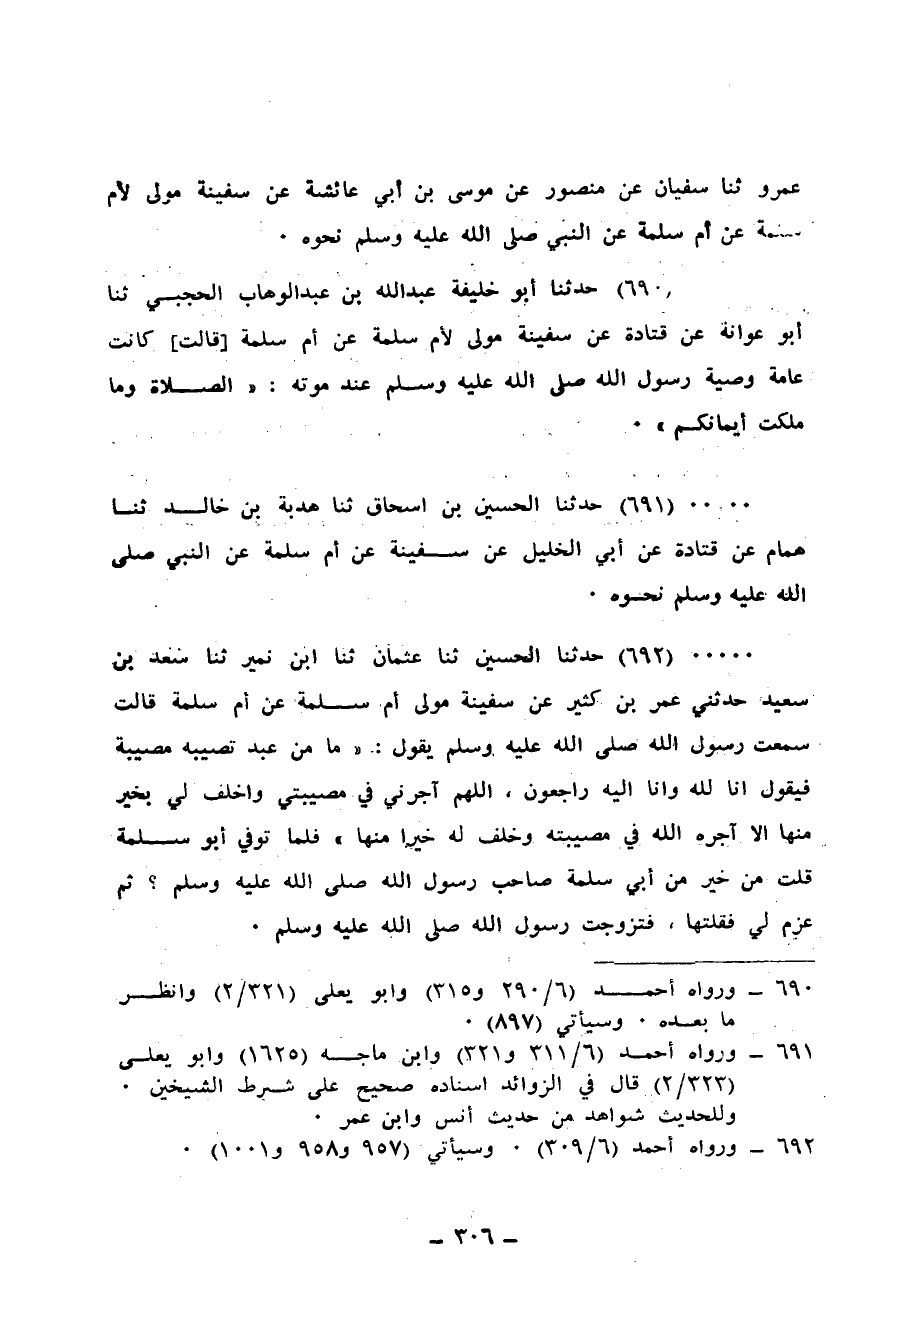 عمرو ثنا سفيان عن منصور عن موسى بن أبي عائشة عن سفينة مولى لأم
سلمة عن أم سلمة عن النبي صلى الله عليه وسلم نحوه ٠
(٦٩٠) حدثنا أبو خليفة عبدالله بن عبدالوهاب الحجبي ثنا
أبو عوانة عن قتادة عن سفينة مولى لأم سلمة عن أم سلمة [قالت] كانت
عامة وصية رسول الله صلى الله عليه وسلم عند موته : « الصلاة وما
ملكت أيمانكم » ٠
٠٠٠٠٠ (٦٩١) حدثنا الحسين بن اسحاق ثنا هدبة بن خالد ثنا
همام عن قتادة عن أبي الخليل عن سفينة عن أم سلمة عن النبي صلى
الله عليه وسلم نحوه ٠
٠٠٠٠٠ (٦٩٢) حدثنا الحسين ثنا عثمان ثنا ابن نمير ثنا سعد بن
سعيد حدثني عمر بن كثير عن سفينة مولى أم سلمة عن أم سلمة قالت
سمعت رسول الله صلى الله عليه وسلم يقول : « ما من عبد تصيبه مصيبة
فيقول انا لله وانا اليه راجعون ، اللهم آجرني في مصيبتي واخلف لي بخير
منها الا آجره الله في مصيبته وخلف له خيرا منها » فلما توفي أبو سلمة
قلت من خير من أبي سلمة صاحب رسول الله صلى الله عليه وسلم ؟ ثم
عزم لي فقلتها ، فتزوجت رسول الله صلى الله عليه وسلم ٠
٦٩٠ ــ ورواه أحمد (٦/٢٩٠ و٣١٥) وابو يعلى (٢/٣٢١) وانظر
ما بعده ٠ وسيأتي (٨٩٧) ٠
٦٩١ ــ ورواه أحمد (٦/٣١١ و٣٢١) وابن ماجه (١٦٢٥) وابو يعلى
(٢/٣٢٣) قال في الزوائد اسناده صحيح على شرط الشيخين ٠
وللحديث شواهد من حديث أنس وابن عمر ٠
٦٩٢ ــ ورواه أحمد (٦/٣٠٩) ٠ وسيأتي (٩٥٧ و٩٥٨ و١٠٠١) ٠
ــ ٣٠٦ ــ